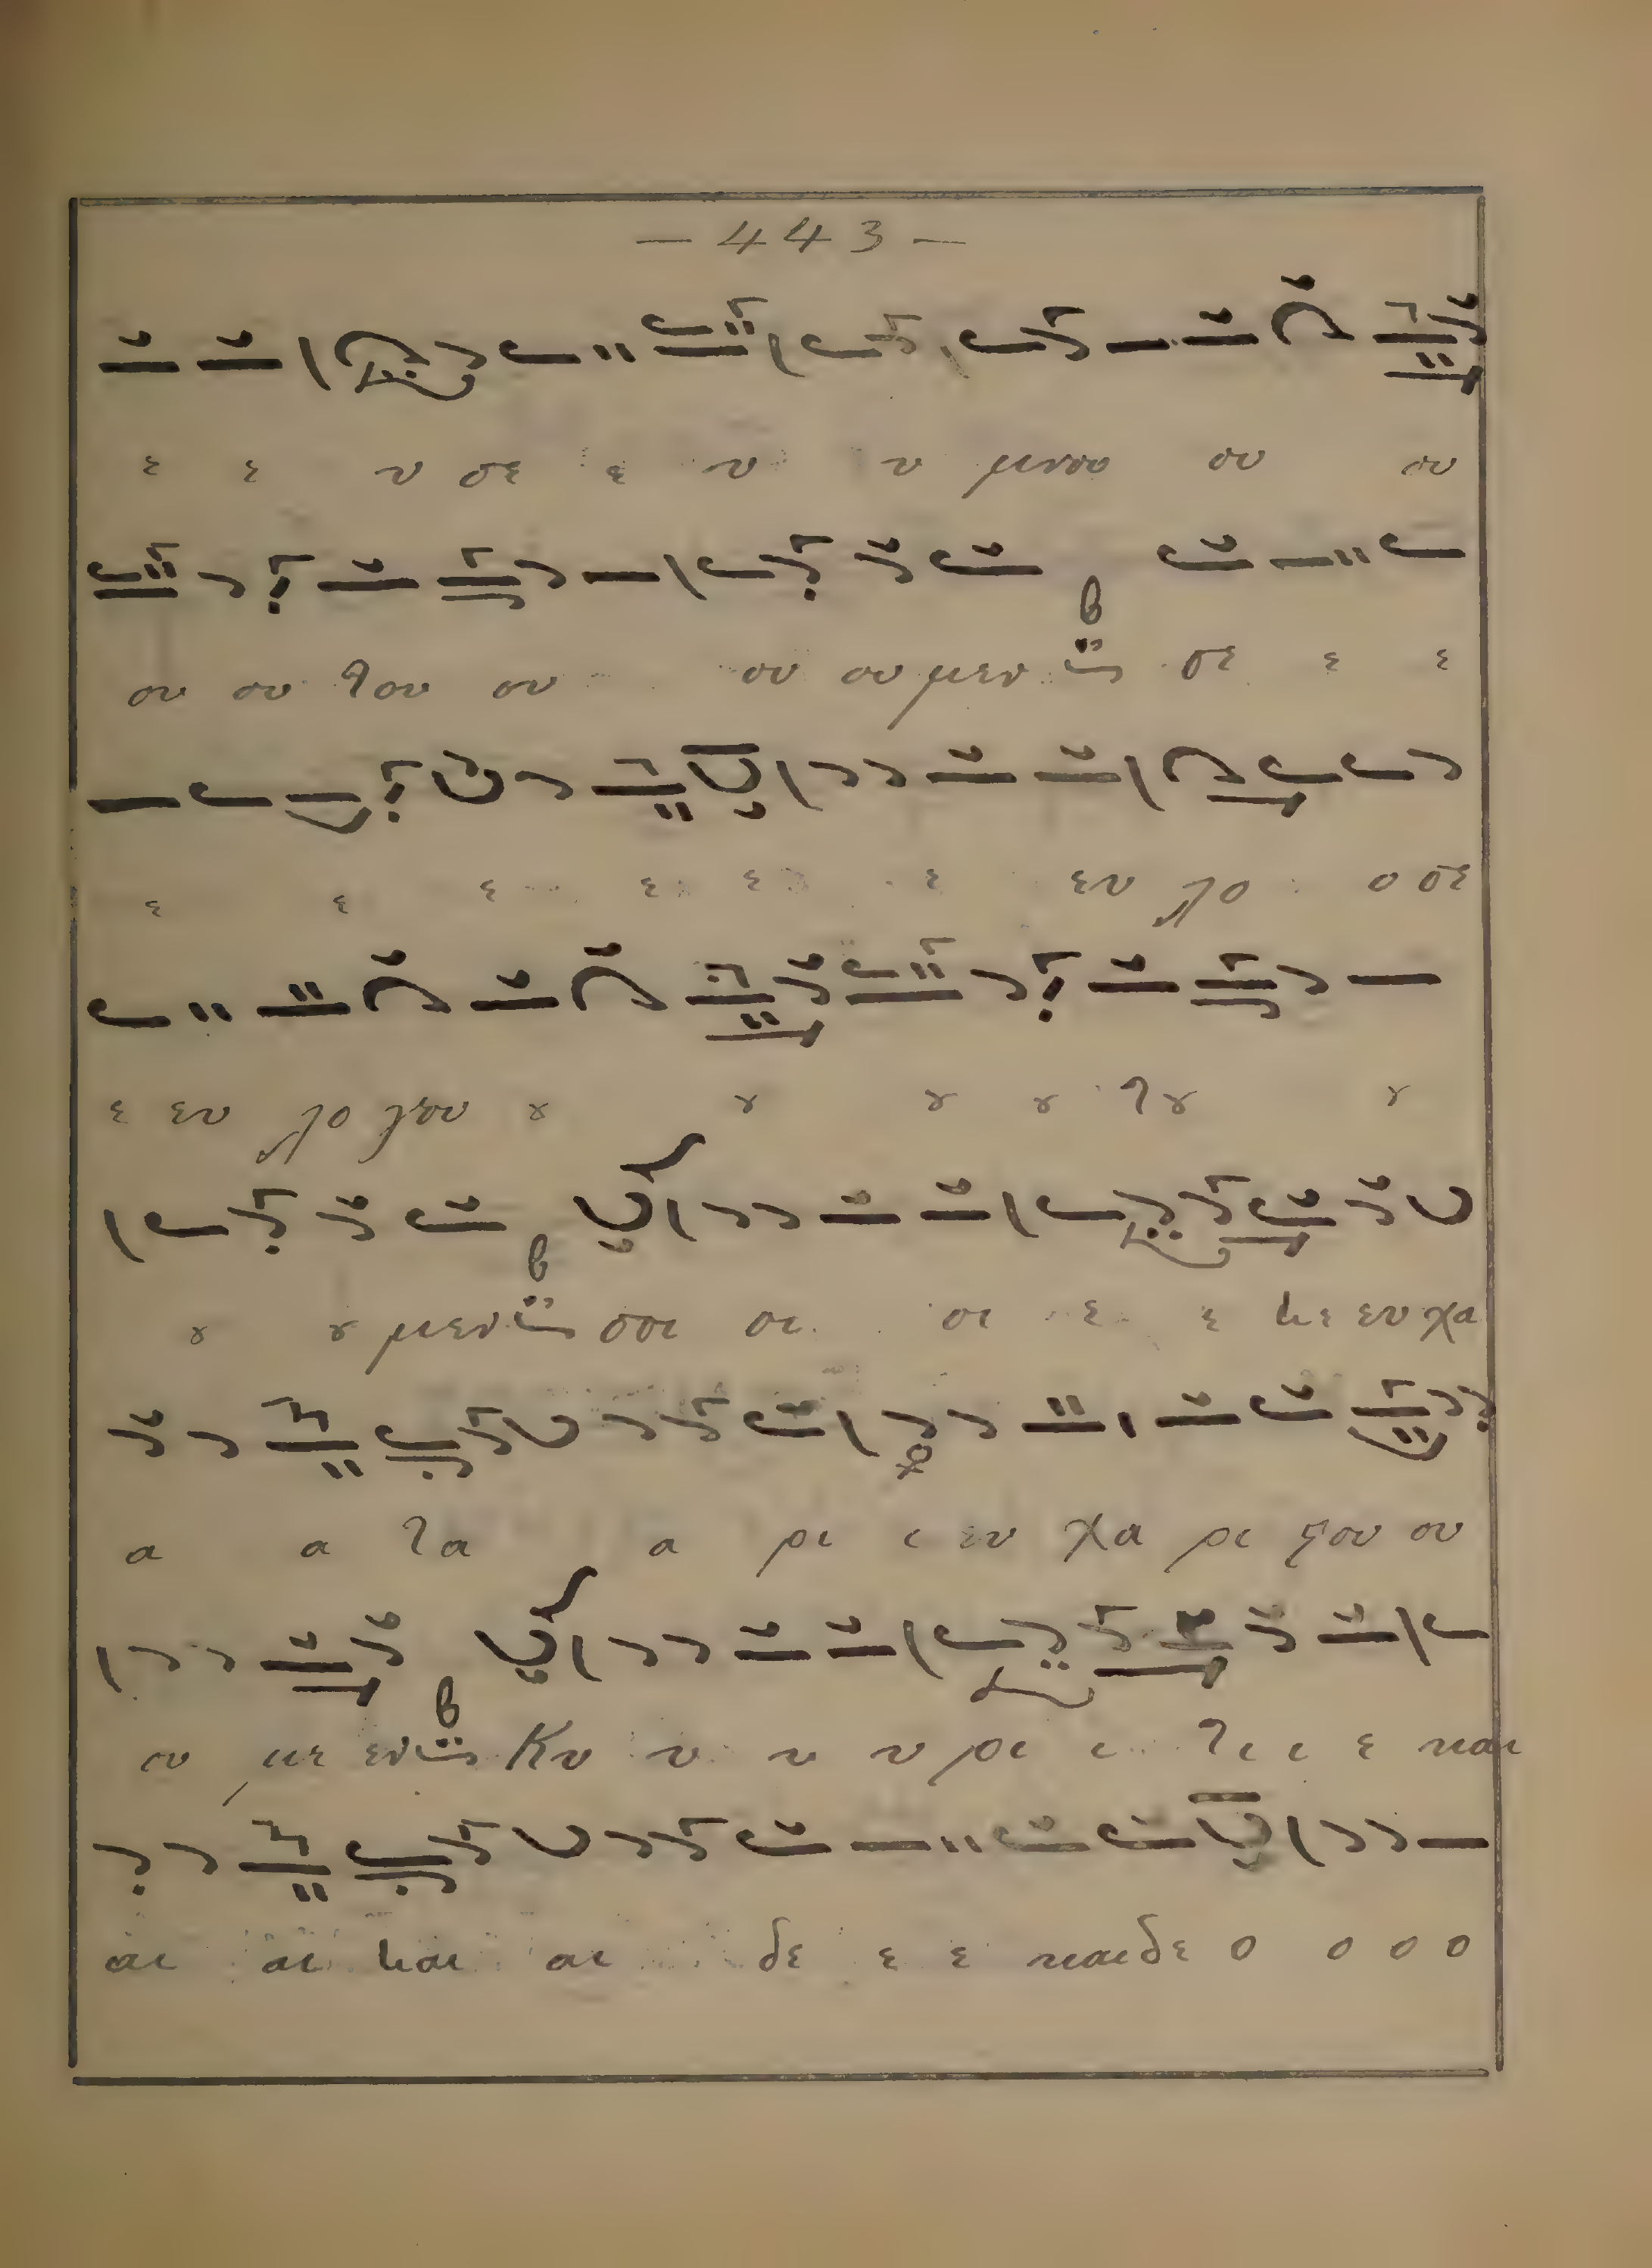 — 443 —
ε ε υ σε ε υ υ μνου ου ου
ου ου του ου ου ου μεν σε ε ε
ε ε ε ε ε ε ευ λο ο σε
ε ευ λο γου ȣ ȣ ȣ ȣ τȣ ȣ
ȣ ȣ μεν σοι οι οι ε ε κε ευ χα
α α τα α ρι ι ευ χα ρι ϛου ου
ου με εν Κυ υ υ υ ρι ι τι ι ε και
αι αι και αι δε ε ε και δε ο ο ο ο